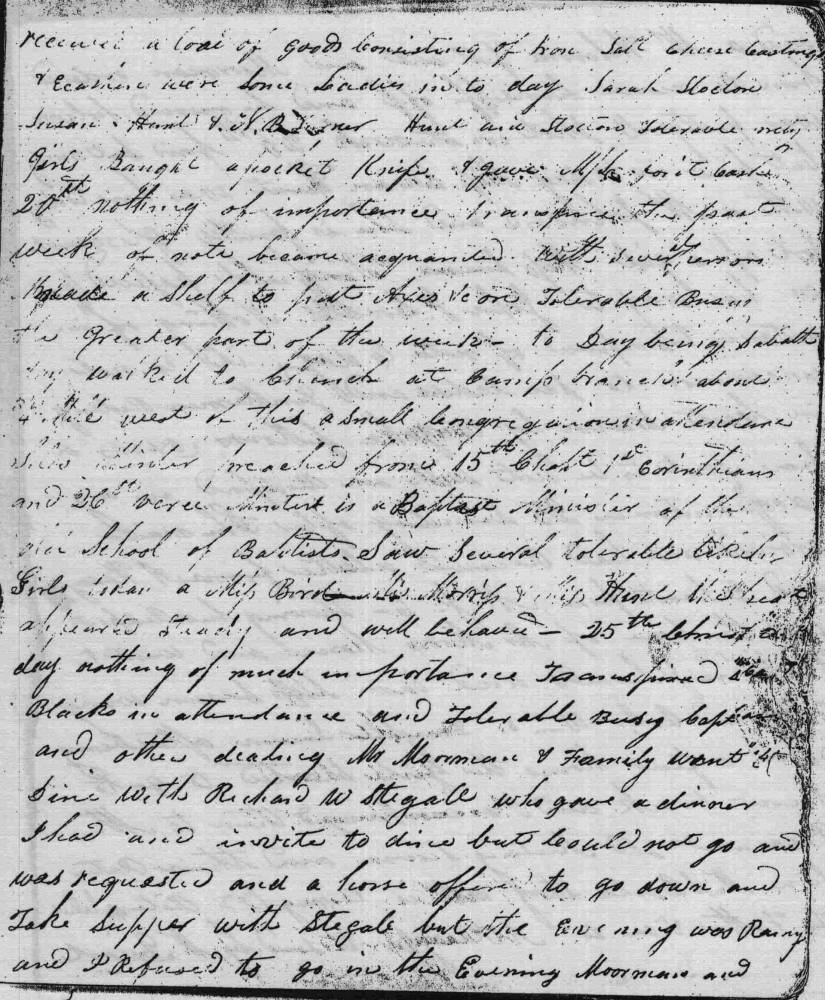 received a load of goods Consisting of Iron Salt Cheese Castings
& were some Ladies in to day Sarah Stocton
Susan Hunt & N. B Hunt and Stocton Tolerable
Girls Baught a pocket Knife & gave for it Cash
20th nothing of importance transpired the past
week of note became acquanted with
Made a Shelf to put Axes &c on Tolerable Busy
the Greater part of the week – to Day being Sabath
day walked to Church at Camp branch about
west of this a small Congregation in attendance
preached from 15th Chapt 1st Corinthians
and 26th verce is a Baptist Minister of the
old School of Babtists Saw Several tolerable likely
Girls a Miss Bird Morriss & Miss Hunt the
appeared Steady and well behaved – 25th Christmas
day nothing of much importance Transpired
Blacks in attendance and Tolerable Busy
and other dealing Mr Moorman & Family went
Dine with Richard W Stegall who gave a dinner
I had and invite to dine but Could not go and
was requested and a horse offered to go down and
Take Supper with Stegale but the Evening was Rainy
and I Refused to go in the Evening Moorman and